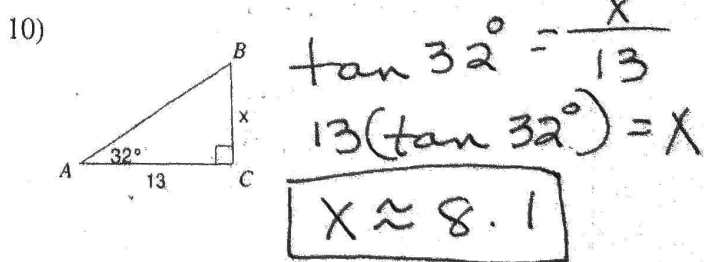 10)
B
x
32°
A
13
C
tan 32° = x/13
13(tan 32°) = x
x ≈ 8.1